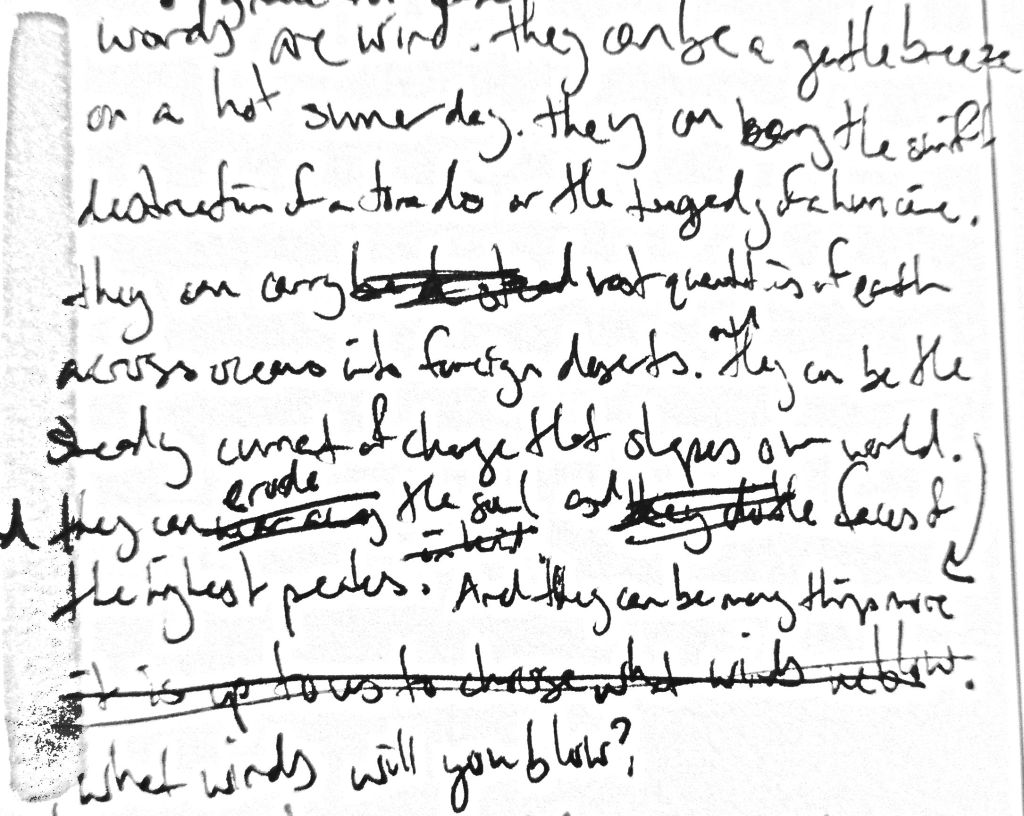 words are wind. they can be a gentle breeze
on a hot summer day. they can bring the swift
destruction of a tornado or the tragedy of a hurricane.
they can carry vast quantities of earth
across oceans into foreign deserts. they can be the
steady current of change that shapes our world.
erode
they can the soul and the faces of
the highest peaks. And they can be many things more
it is up to us to choose what winds we blow.
what winds will you blow?